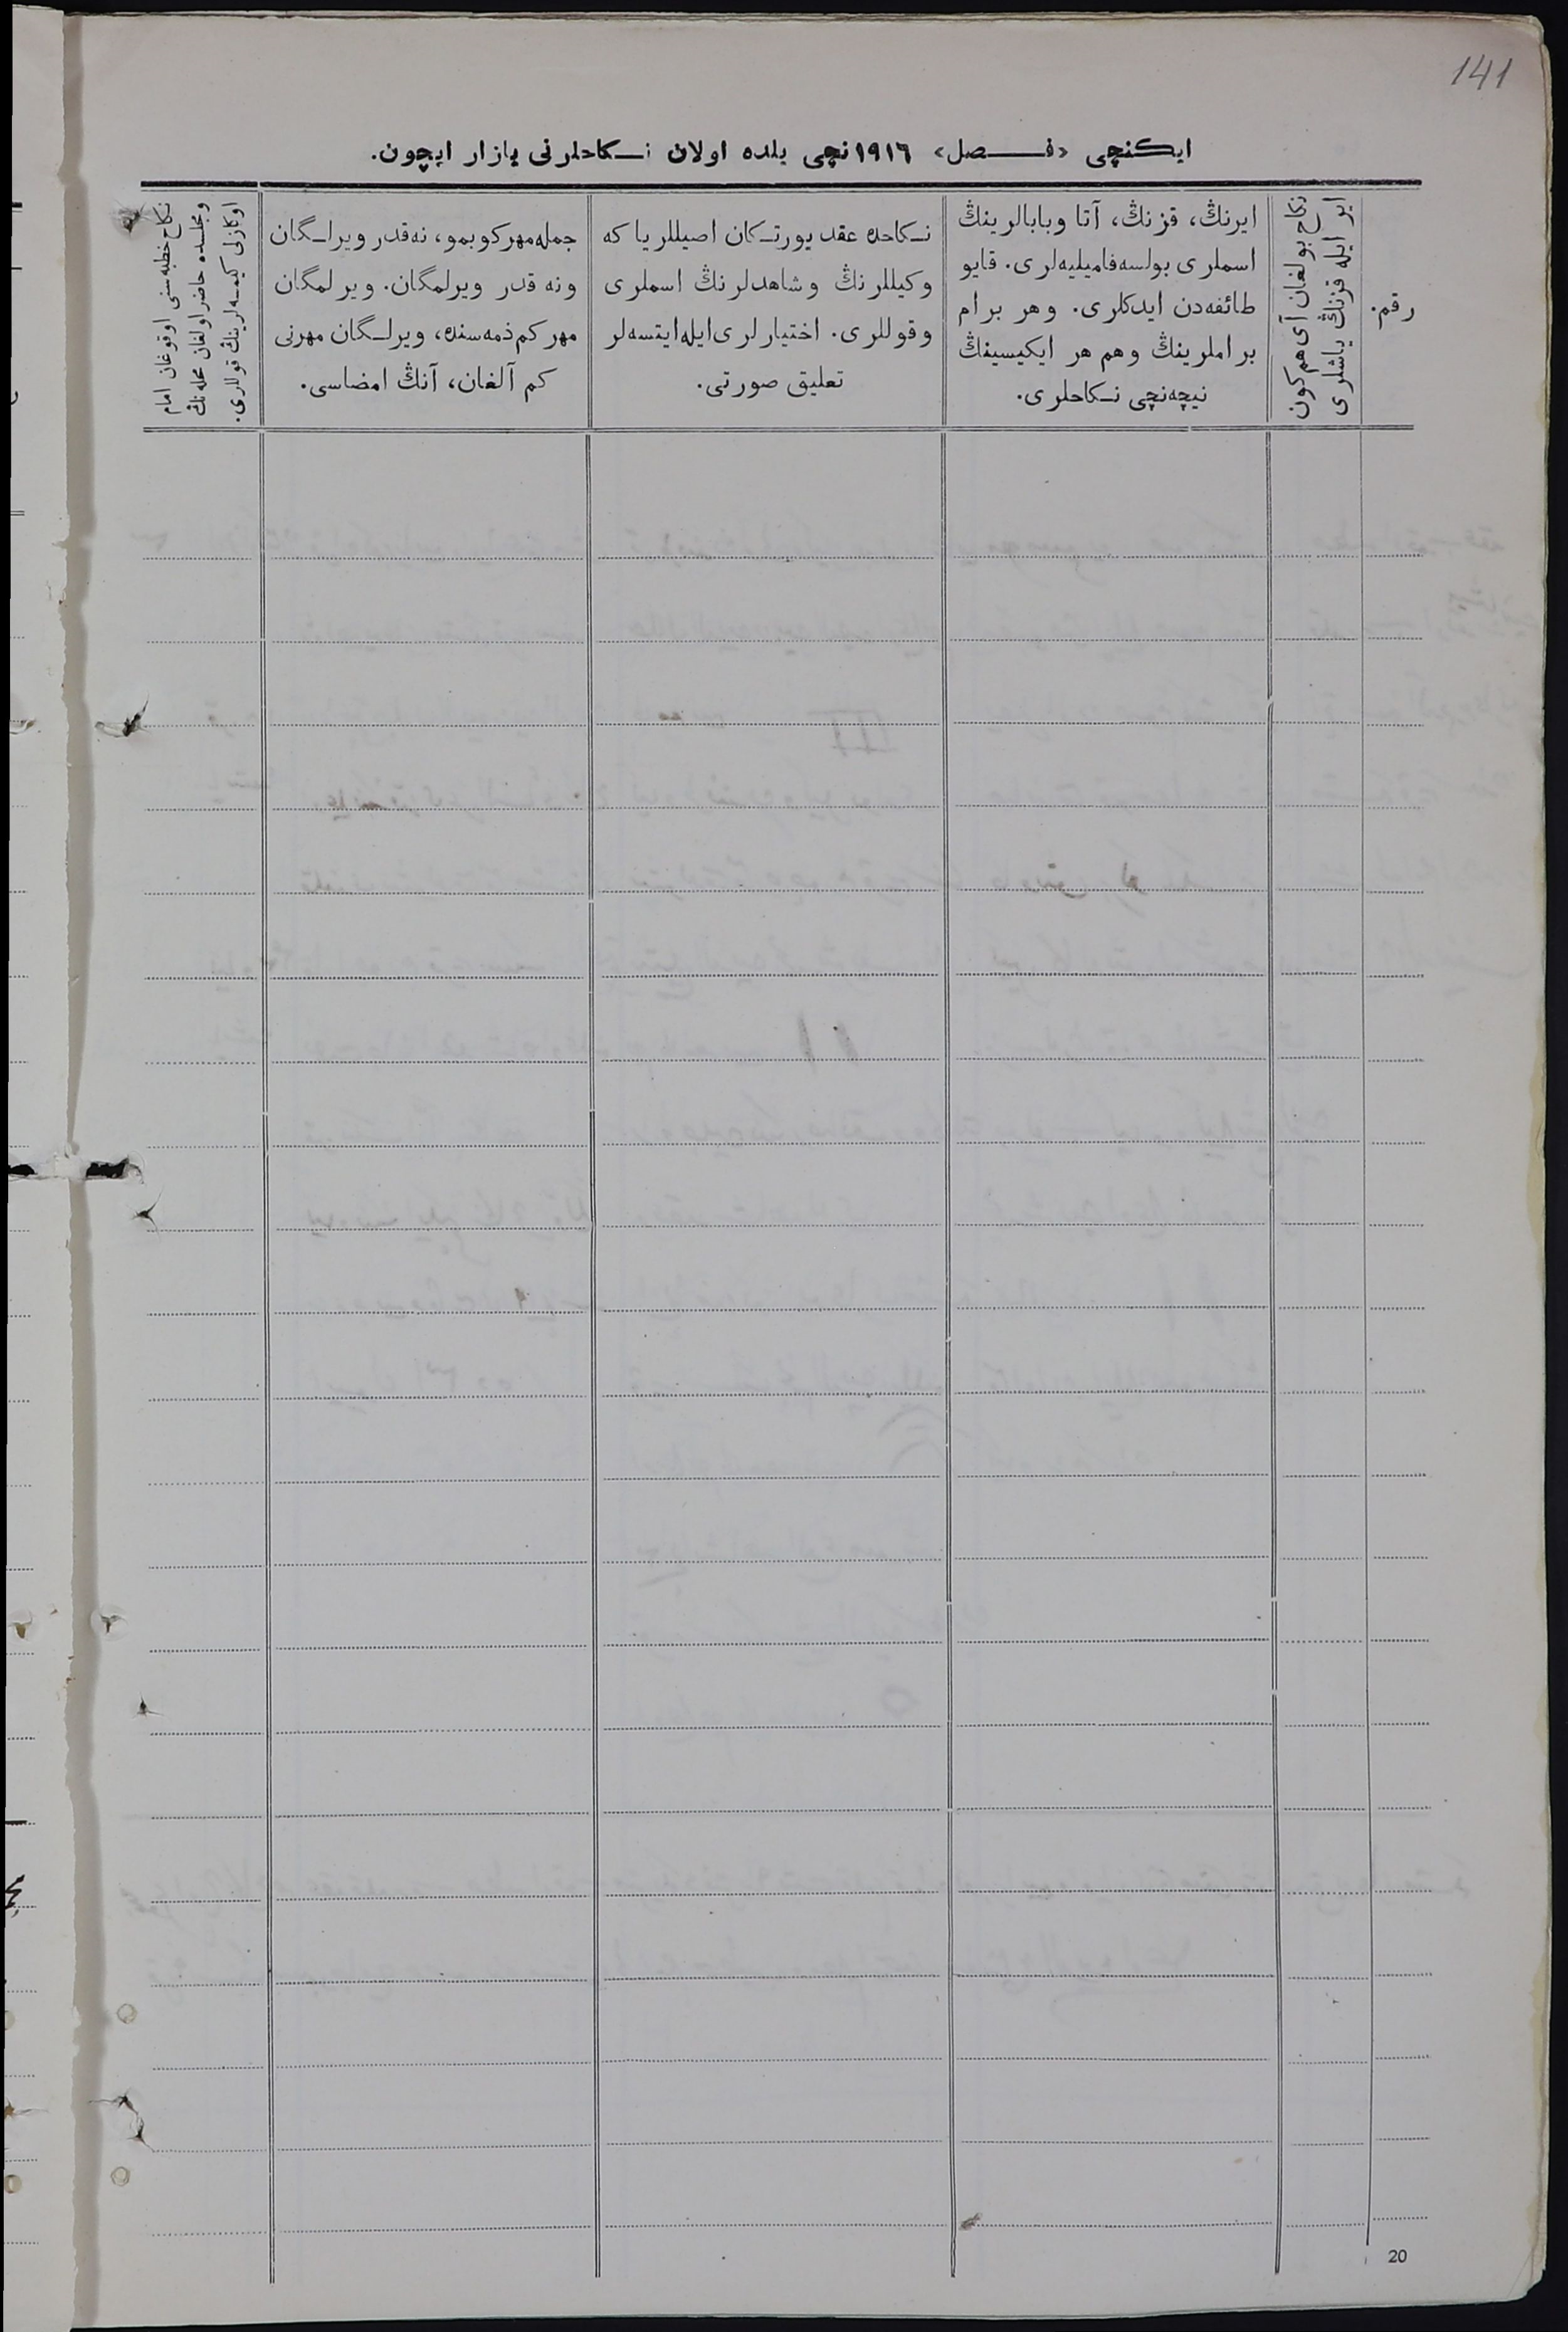 141
ایکنچی «فـصل» ١٩١٦نچی یلده اولان نـکاحلرنی یازار ایچون.
رقم.
نکاح بولغان آی هم کون
ایر ایله قزنڭ یاشلری
ایرنڭ، قزنڭ، آتا وبابالرینڭ
اسملری بولسه‌فامیلیه‌لری. قایو
طائفه‌دن ایدکلری. وهر برام
براملرینڭ وهم هر ایکیسینڭ
نیچه‌نچی نـکاحلری.
نـکاحده عقد یورتـکان اصیللر یا که
وکیللرنڭ وشاهدلرنڭ اسملری
وقوللری. اختیارلری ایله‌ایتسه‌لر
تعلیق صورتی.
جمله‌مهر کوبمو، نه‌قدر ویرلـگان
ونه قدر ویرلمگان. ویرلمگان
مهر کم ذمه‌سنده، ویرلـگان مهرنی
کم آلغان، آنڭ امضاسی.
نکاح خطبه‌سنی اوقوغان امام
ومجلسده حاضر اولغان محله‌نڭ
اوکازلی کیمـه‌لرینڭ قوللاری.
20